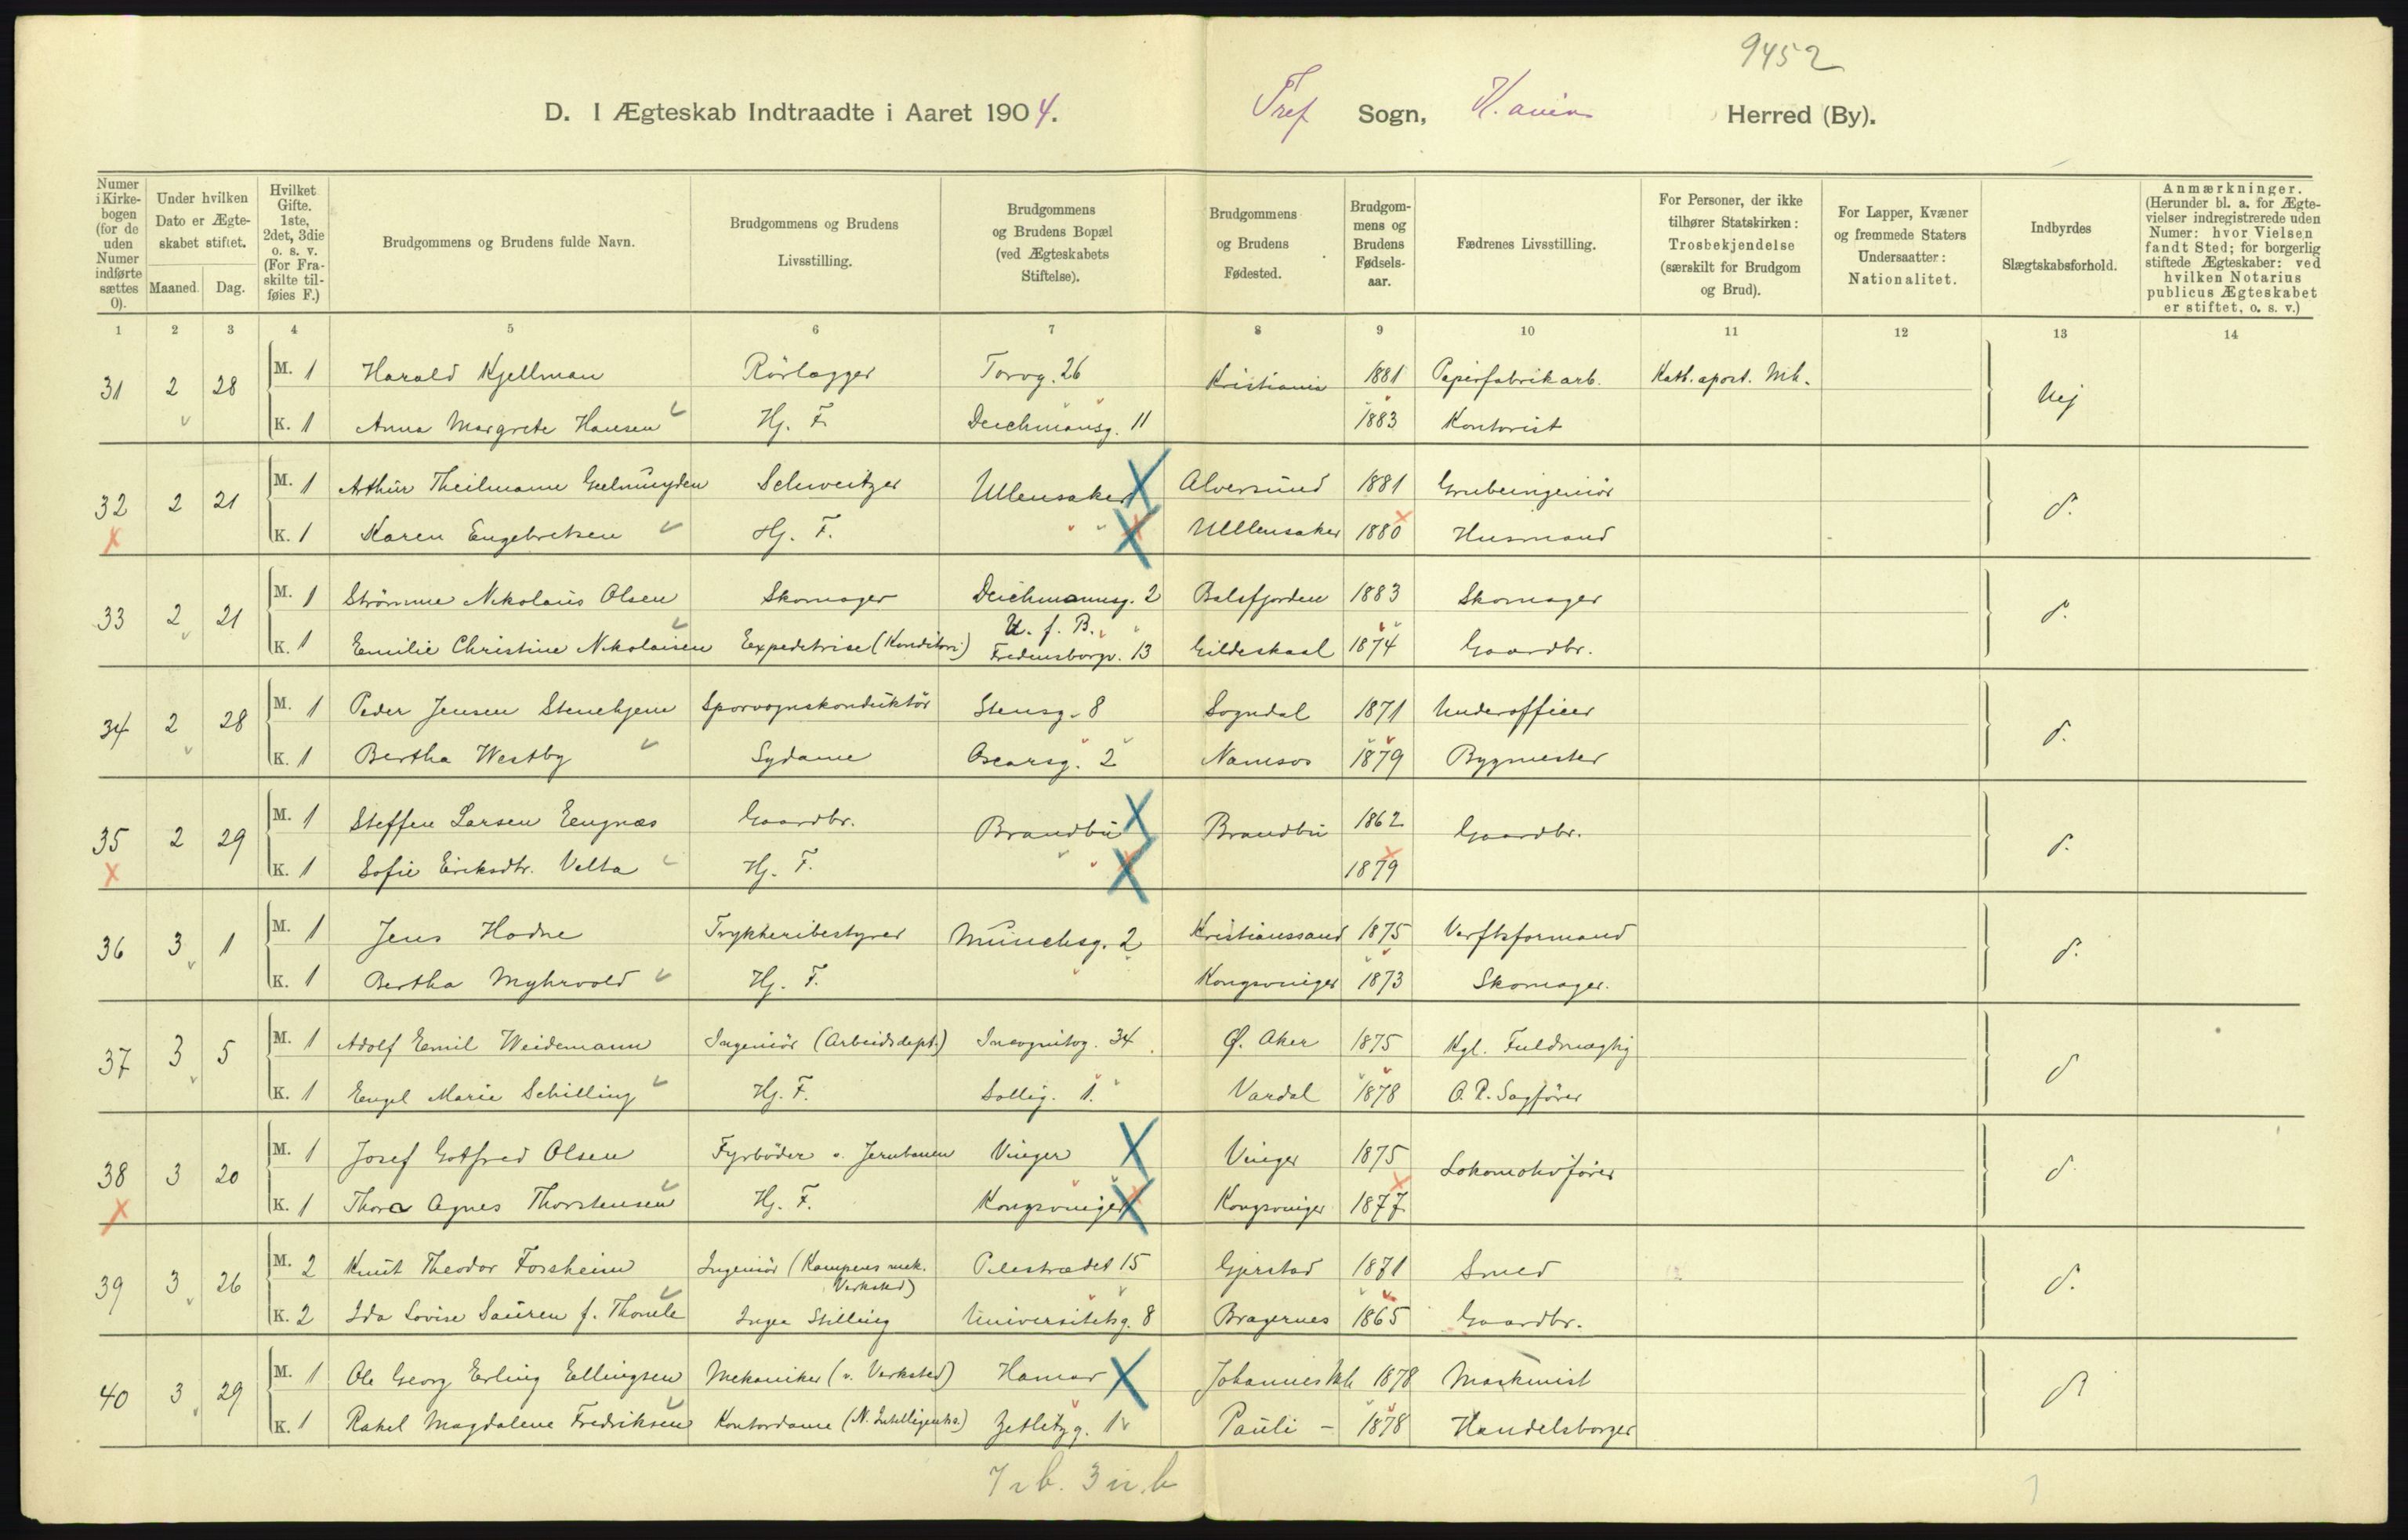 9452
D. I Ægteskab Indtraadte i Aaret 1904. Tref Sogn, Herred (By).
Numer i Kirkebogen (for de uden Numer indførte sættes 0).
Under hvilken Dato er Ægteskabet stiftet.
Maaned. Dag.
Hvilket Gifte. 1ste, 2det, 3die o. s. v. (For Fraskilte tilføies F.)
Brudgommens og Brudens fulde Navn.
Brudgommens og Brudens Livsstilling.
Brudgommens og Brudens Bopæl (ved Ægteskabets Stiftelse).
Brudgommens og Brudens Fødested.
Brudgommens og Brudens Fødselsaar.
Fædrenes Livsstilling.
For Personer, der ikke tilhører Statskirken: Trosbekjendelse (særskilt for Brudgom og Brud).
For Lapper, Kvæner og fremmede Staters Undersaatter: Nationalitet.
Indbyrdes Slægtskabsforhold.
Anmærkninger. (Herunder bl. a. for Ægtevielser indregistrerede uden Numer: hvor Vielsen fandt Sted; for borgerlig stiftede Ægteskaber: ved hvilken Notarius publicus Ægteskabet er stiftet, o. s. v.)
1 2 3 4 5 6 7 8 9 10 11 12 13 14
31 2 28 M. 1 Harald Kjellman Rörlægger Torvg. 26 Kristiania 1881 Papirfabrikarb. Kath. apost. Mh. Nej
K. 1 Anna Margrete Hansen Hj. F. Deichmansg. 11 1883 Kontorist
32 2 21 M. 1 Arthur Theilmann Geelmuyden Schweitzer Ullensaker Alversund 1881 Grubeingeniör d.
K. 1 Karen Engebretsen Hj. F. " " Ulllensaker 1880 Husmand
33 2 21 M. 1 Strömme Nikolaus Olsen Skomager Deichmannsg. 2 Balsfjorden 1883 Skomager d.
U. f. B.
K. 1 Emilie Christine Nikolaisen Expeditrise (Konditori) Fredensborgv. 13 Gildeskaal 1874 Gaardbr.
34 2 28 M. 1 Peder Jensen Stenehjem Sporvognskonduktör Stensg. 8 Sogndal 1871 Underofficer d.
K. 1 Bertha Westby Sydame Oscarsg. 2 Namsos 1879 Bygmester
35 2 29 M. 1 Steffen Larsen Gaardbr. Brandbu Brandbu 1862 Gaardbr. d.
K. 1 Sofie Eriksdtr. Velta Hj. F. " " 1879
36 3 1 M. 1 Jens Hodne Trykkeribestyrer Munchsg. 2 Kristianssand 1875 Verftsformand d.
K. 1 Bertha Myhrvold Hj. F. " Kongsvinger 1873 Skomager.
37 3 5 M. 1 Adolf Emil Weidemann Ingeniör (Arbeidsdept.) Incognitog. 34 Ø. Aker 1875 Kgl. Fuldmægtig d
K. 1 Engel Marie Schilling Hj. F. Sollig. 1. Vardal 1878 O. R. Sagförer
38 3 20 M. 1 Josef Gotfred Olsen Fyrböder v. Jernbanen Vinger Vinger 1875 Lokomotivförer d
K. 1 Thora Agnes Thorstensen Hj. F. Kongsvinger Kongsvinger 1877
39 3 26 M. 2 Knut Theodor Forsheim Ingeniör (Kampens mek. Pilestrædet 15 Gjerstad 1871 Smed d.
Verksted)
K. 2 Ida Lovise Sauren f. Thomle Ingen Stilling Universitetsg. 8 Bragernes 1865 Gaardbr.
40 3 29 M. 1 Ole Georg Erling Ellingsen Mekaniker (v. Verksted) Hamar Johannes Mh 1878 Maskinist d
K. 1 Rakel Magdalene Fredriksen Kontordame (N. Intelligents.) Zetlitzg. 1 Pauli - 1878 Handelsborger